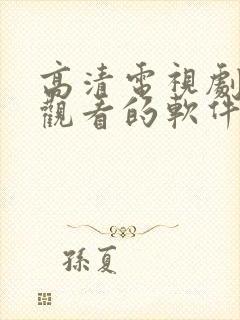 高清電視劇
觀看的軟件
孫夏